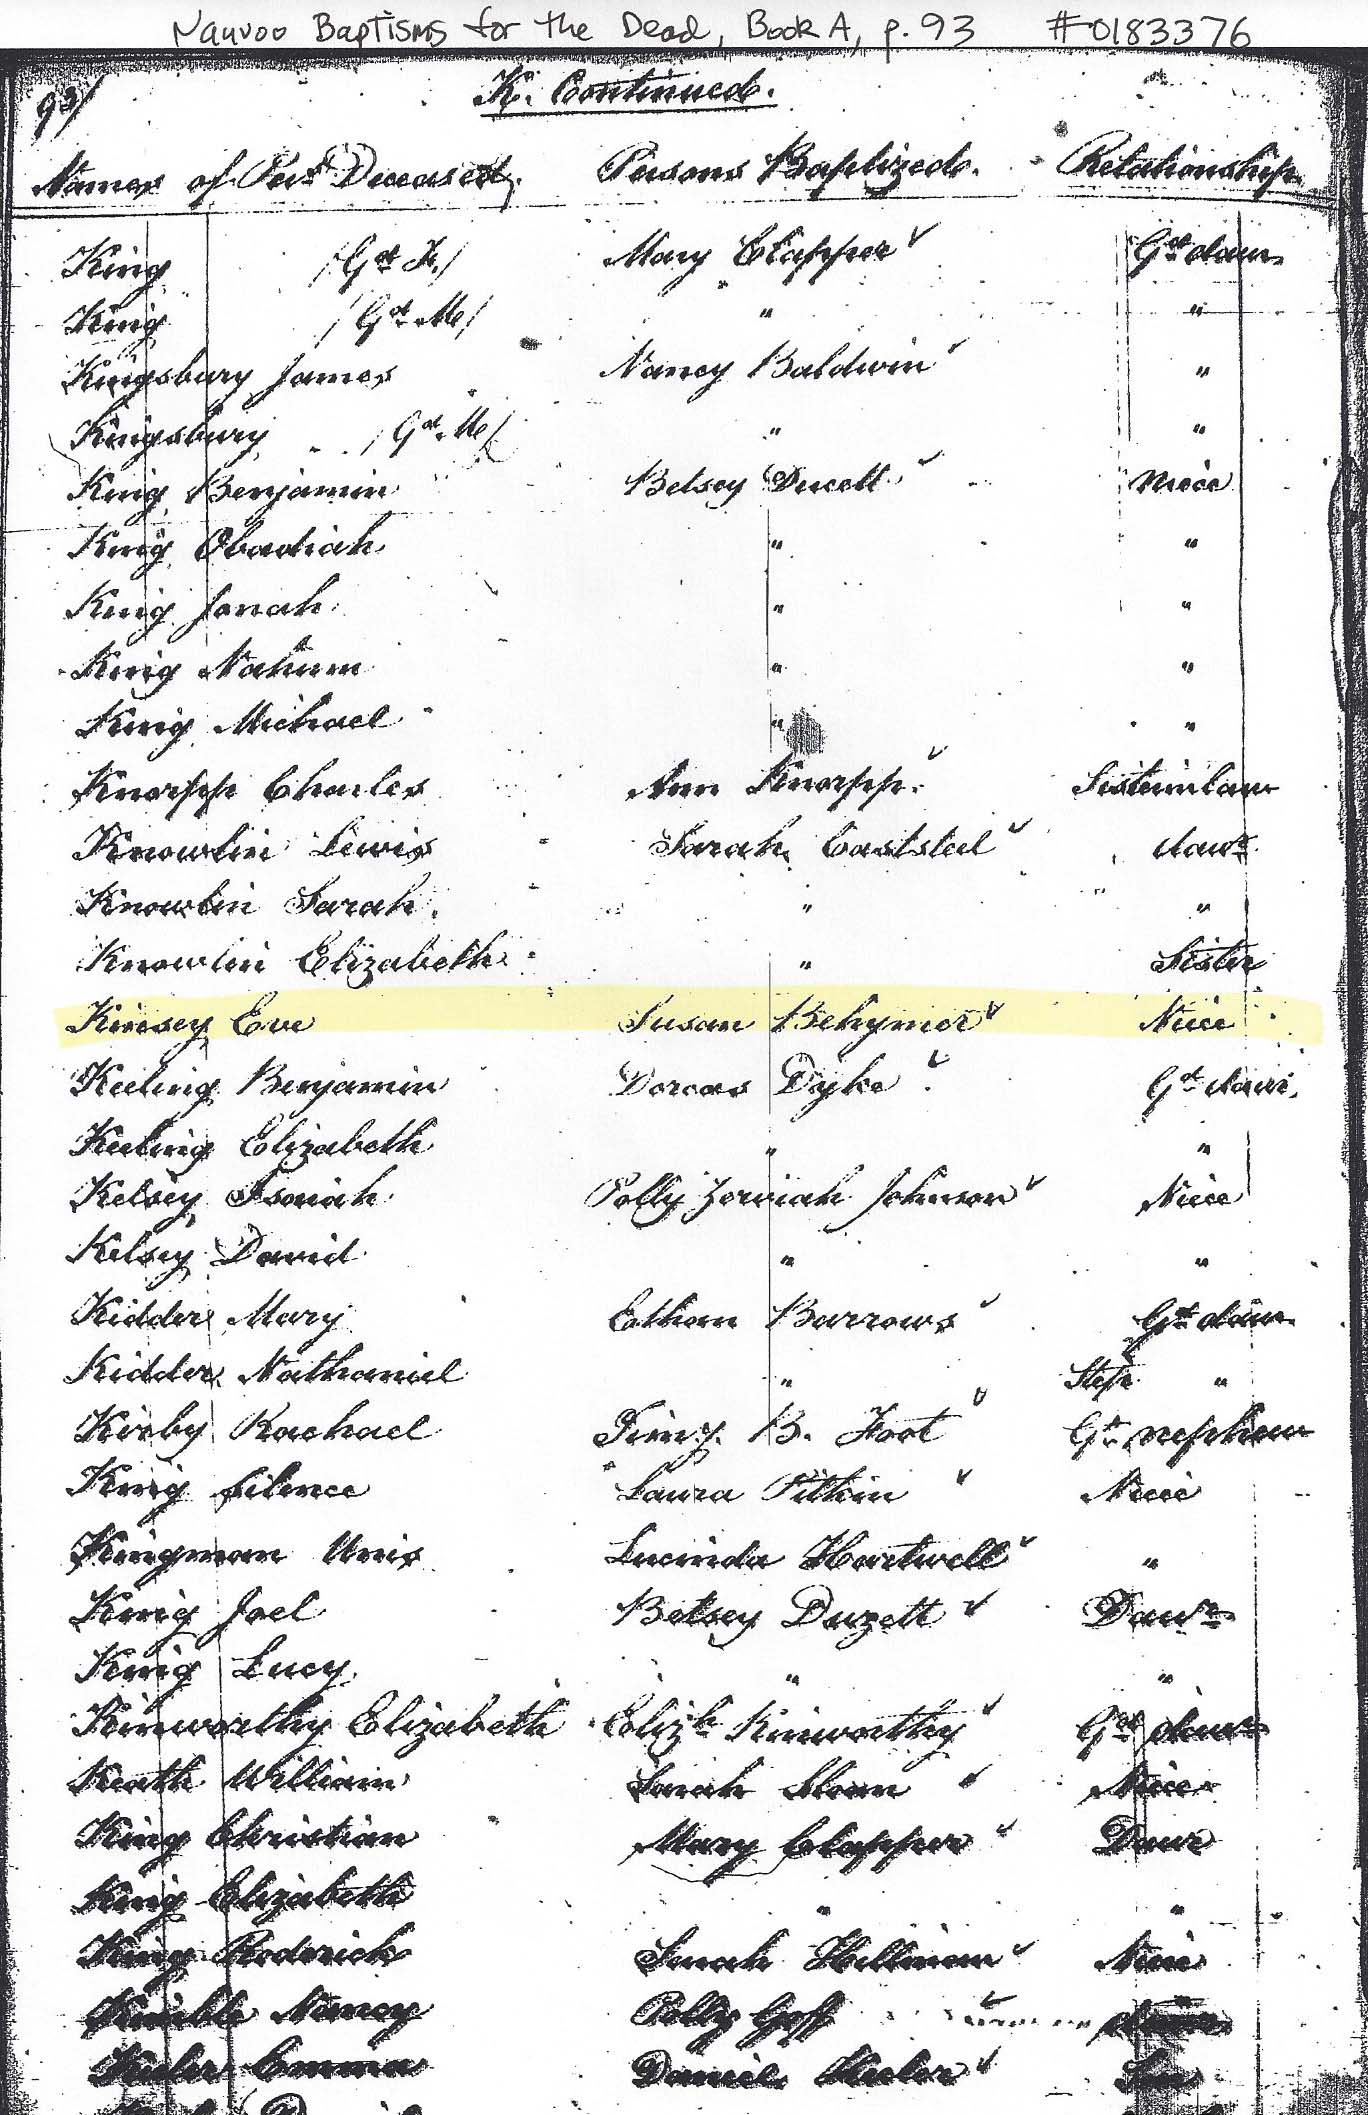 Nauvoo Baptisms for the Dead, Book A, p. 93 #0183376
93/ K. Continued.
Names of Pers Deceased. Persons Baptized. Relationship.
King /Gd F./ Mary Clapper Gd daur
King /Gd M/ " "
Kingsbury James Nancy Baldwin "
Kingsbury /Gd M/ " "
King Benjamin Betsey Ducett Niece
King Obadiah " "
King Jonah " "
King Nahum " "
King Michael " "
Knarpp Charles Ann Knarpp Sisterinlaw
Knowlin Lewis Sarah Eaststed daur
Knowlin Sarah " "
Knowlin Elizabeth " Sister
Kinsey Eve Susan Behymer Niece
Keeling Benjamin Dorcas Dyke Gd daur.
Keeling Elizabeth " "
Kelsey Isaiah Polly Zerviah Johnson Niece
Kelsey David " "
Kidder Mary Ethan Barrows Gd daur
Kidder Nathaniel " Step "
Kirby Rachael Timy. B. Foot Gt nephew
King Silence Laura Pitkin Niece
Kingman Unis Lucinda Hartwell "
King Joel Betsey Duzett Daur
King Lucy " "
Kinworthy Elizabeth Elizth Kinworthy Gd daur
Keath William Sarah Niece
King Christian Mary Clapper Daur
King Elizabeth " "
King Roderick Sarah Hillman Niece
Kimble Nancy Polly Goff
Keeler Emma Daniel Keeler Son